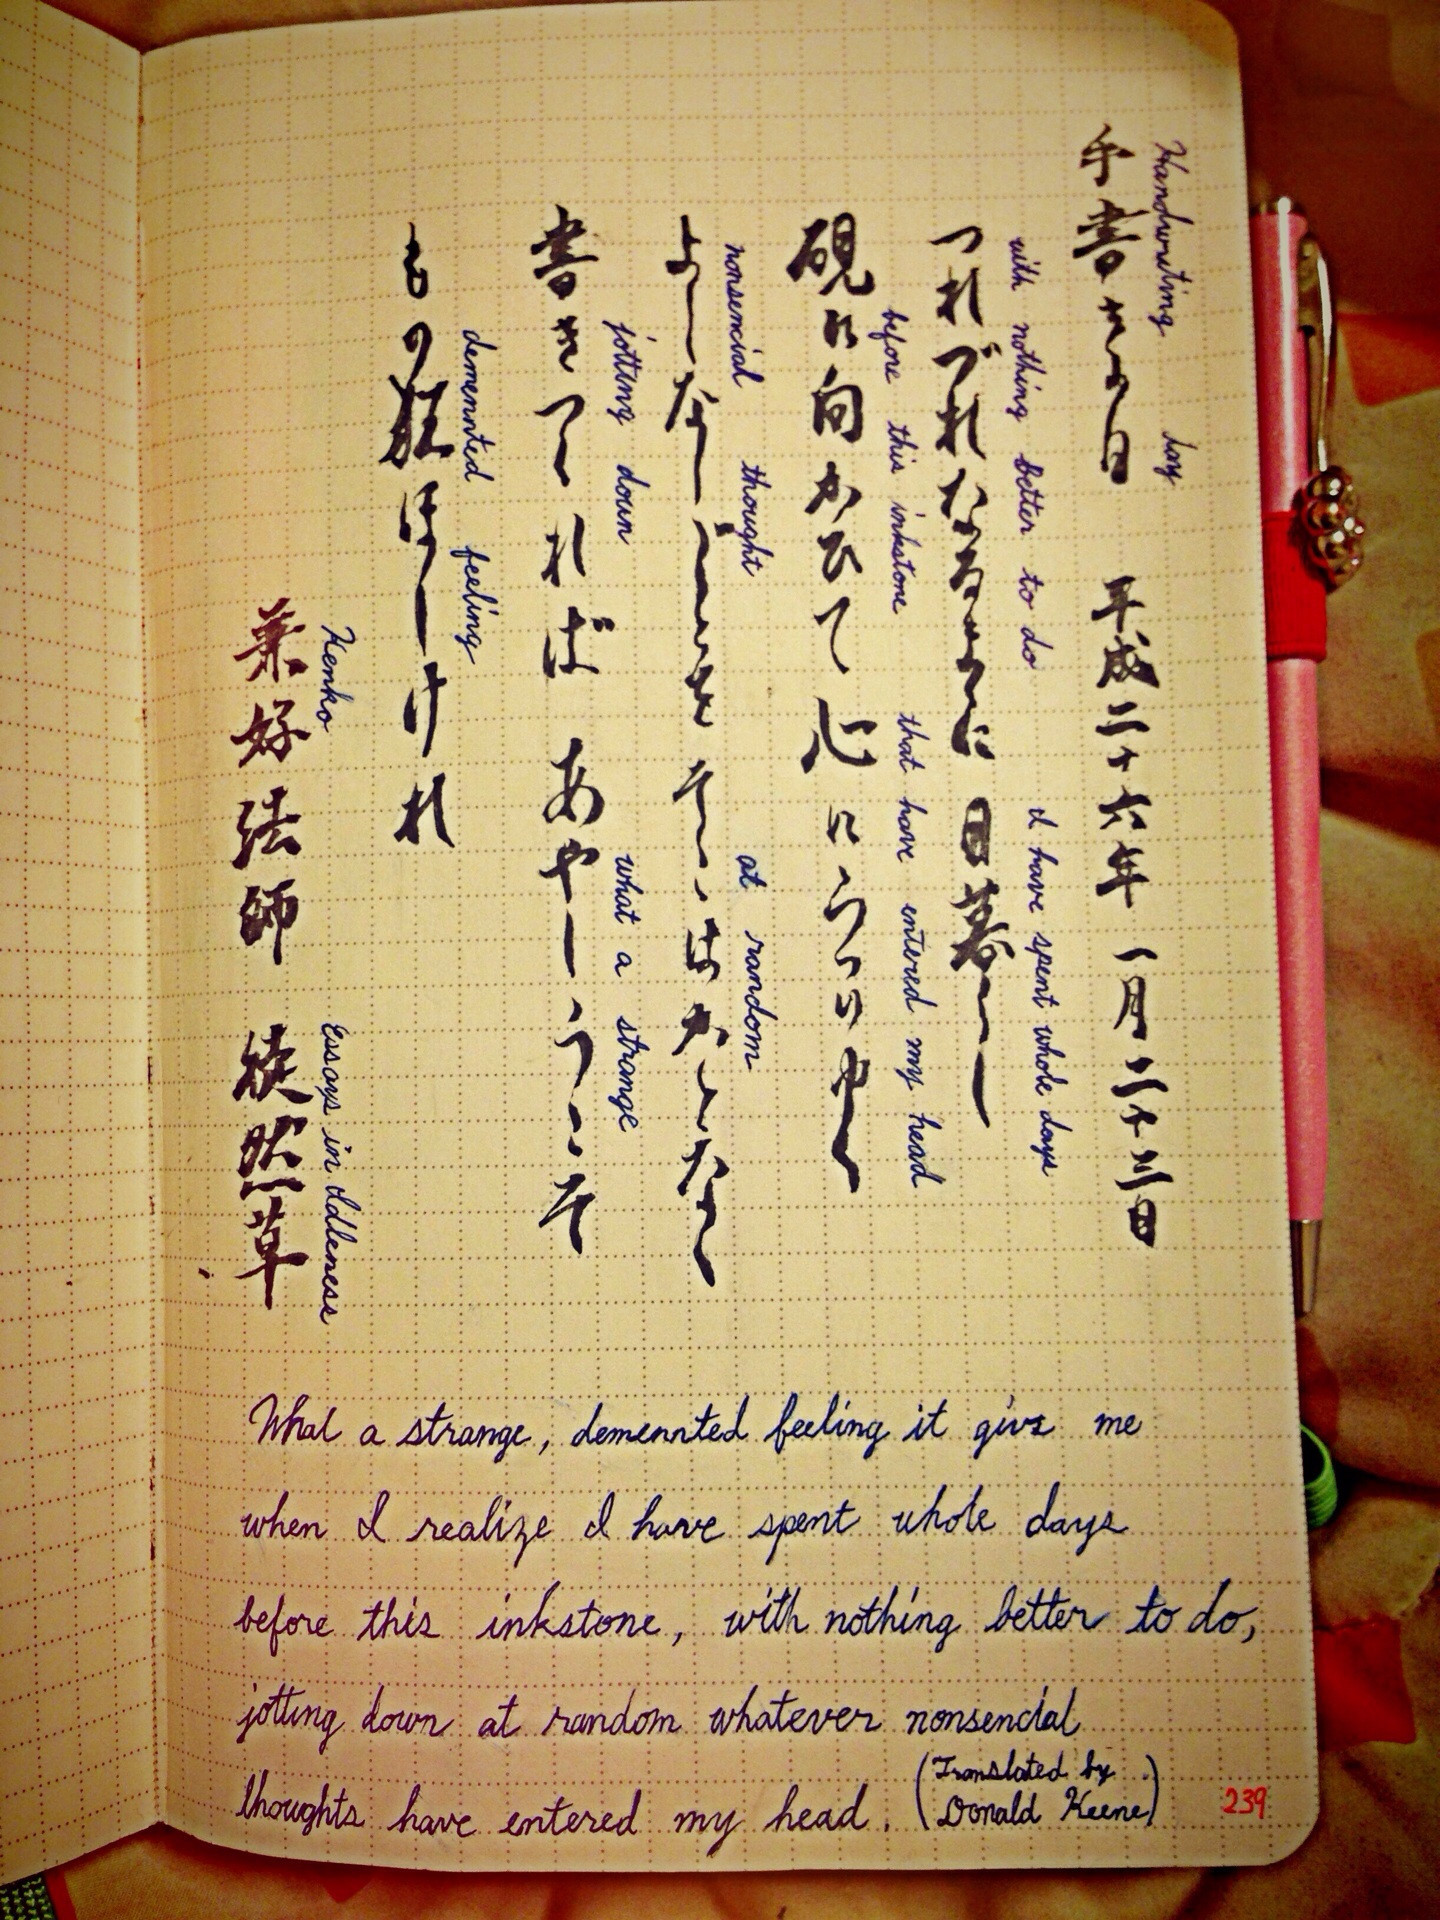 Handwriting day
手書きの日 平成二十六年 一月二十三日
with nothing better to do I have spent whole days
つれづれなるまゝに 日暮し
before this inkstone that have entered my head
硯に向かひて 心にうつりゆく
nonsencial thought at random
よしなしごとを そこはかとなく
jotting down what a strange
書きつくれば あやしうこそ
demennted feeling
もの狂ほしけれ
Kenko Essays in Idleness
兼好法師 徒然草
What a strange, demennted feeling it give me
when I realize I have spent whole days
before this inkstone, with nothing better to do,
jotting down at random whatever nonsencial
thoughts have entered my head. (Translated by
Donald Keene)
239